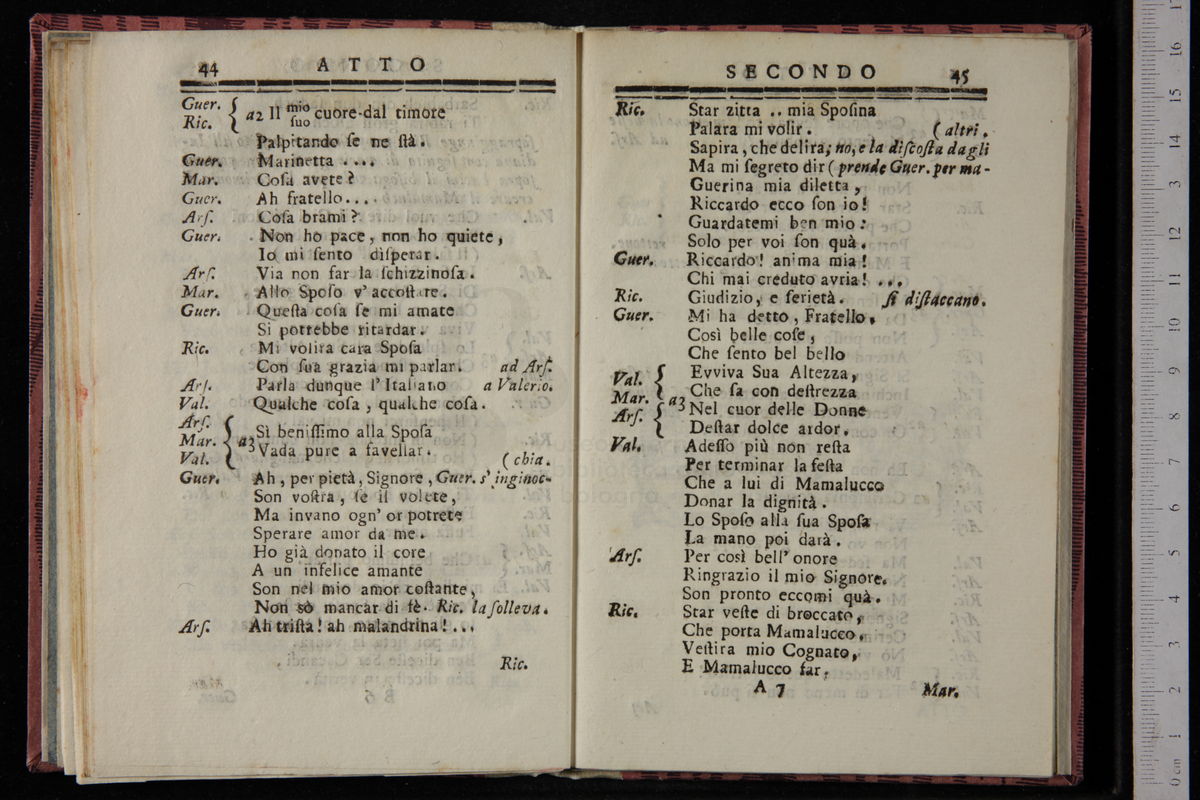 44 ATTO
Guer. Ric. a2 Il mio suo cuore-dal timore
Palpitando ſe ne ſtà.
Guer. Marinetta ....
Mar. Coſa avete?
Guer. Ah fratello....
Arſ. Coſa brami?
Guer. Non ho pace, non ho quiete,
Io mi ſento diſperar.
Arſ. Via non far la ſchizzinoſa.
Mar. Allo Spoſo v' accoſtare.
Guer. Queſta coſa ſe mi amate
Si potrebbe ritardar.
Ric. Mi volira cara Spoſa
Con ſua grazia mi parlar. ad Arſ.
Arſ. Parla dunque l'Italiano a Valerio.
Val. Qualche coſa, qualche coſa.
Arſ. Mar. Val. a3 Sì beniſſimo alla Spoſa
Vada pure a favellar. (chia.
Guer. Ah, per pietà, Signore, Guer. s'inginoc-
Son voſtra, ſe il volete,
Ma invano ogn' or potrete
Sperare amor da me.
Ho già donato il core
A un infelice amante
Son nel mio amor coſtante,
Non sò mancar di fè. Ric. la ſolleva.
Arſ. Ah triſta! ah malandrina!...
Ric.
SECONDO 45
Ric. Star zitta .. mia Spoſina
Palara mi volir. (altri.
Sapira, che delira; no, e la diſcoſta dagli
Ma mi ſegreto dir (prende Guer. per ma-
Guerina mia diletta,
Riccardo ecco ſon io!
Guardatemi ben mio:
Solo per voi ſon quà.
Guer. Riccardo! anima mia!
Chi mai creduto avria! ...
Ric. Giudizio, e ſerietà. ſi diſtaccano.
Guer. Mi ha detto, Fratello,
Così belle coſe,
Che ſento bel bello
Val. Mar. Arſ. a3 Evviva Sua Altezza,
Che ſa con deſtrezza
Nel cuor delle Donne
Deſtar dolce ardor.
Val. Adeſſo più non reſta
Per terminar la feſta
Che a lui di Mamalucco
Donar la dignità.
Lo Spoſo alla ſua Spoſa
La mano poi darà.
Arſ. Per così bell' onore
Ringrazio il mio Signore,
Son pronto eccomi quà.
Ric. Star veſte di broccato,
Che porta Mamalucco,
Veſtira mio Cognato,
E Mamalucco far.
A 7 Mar.